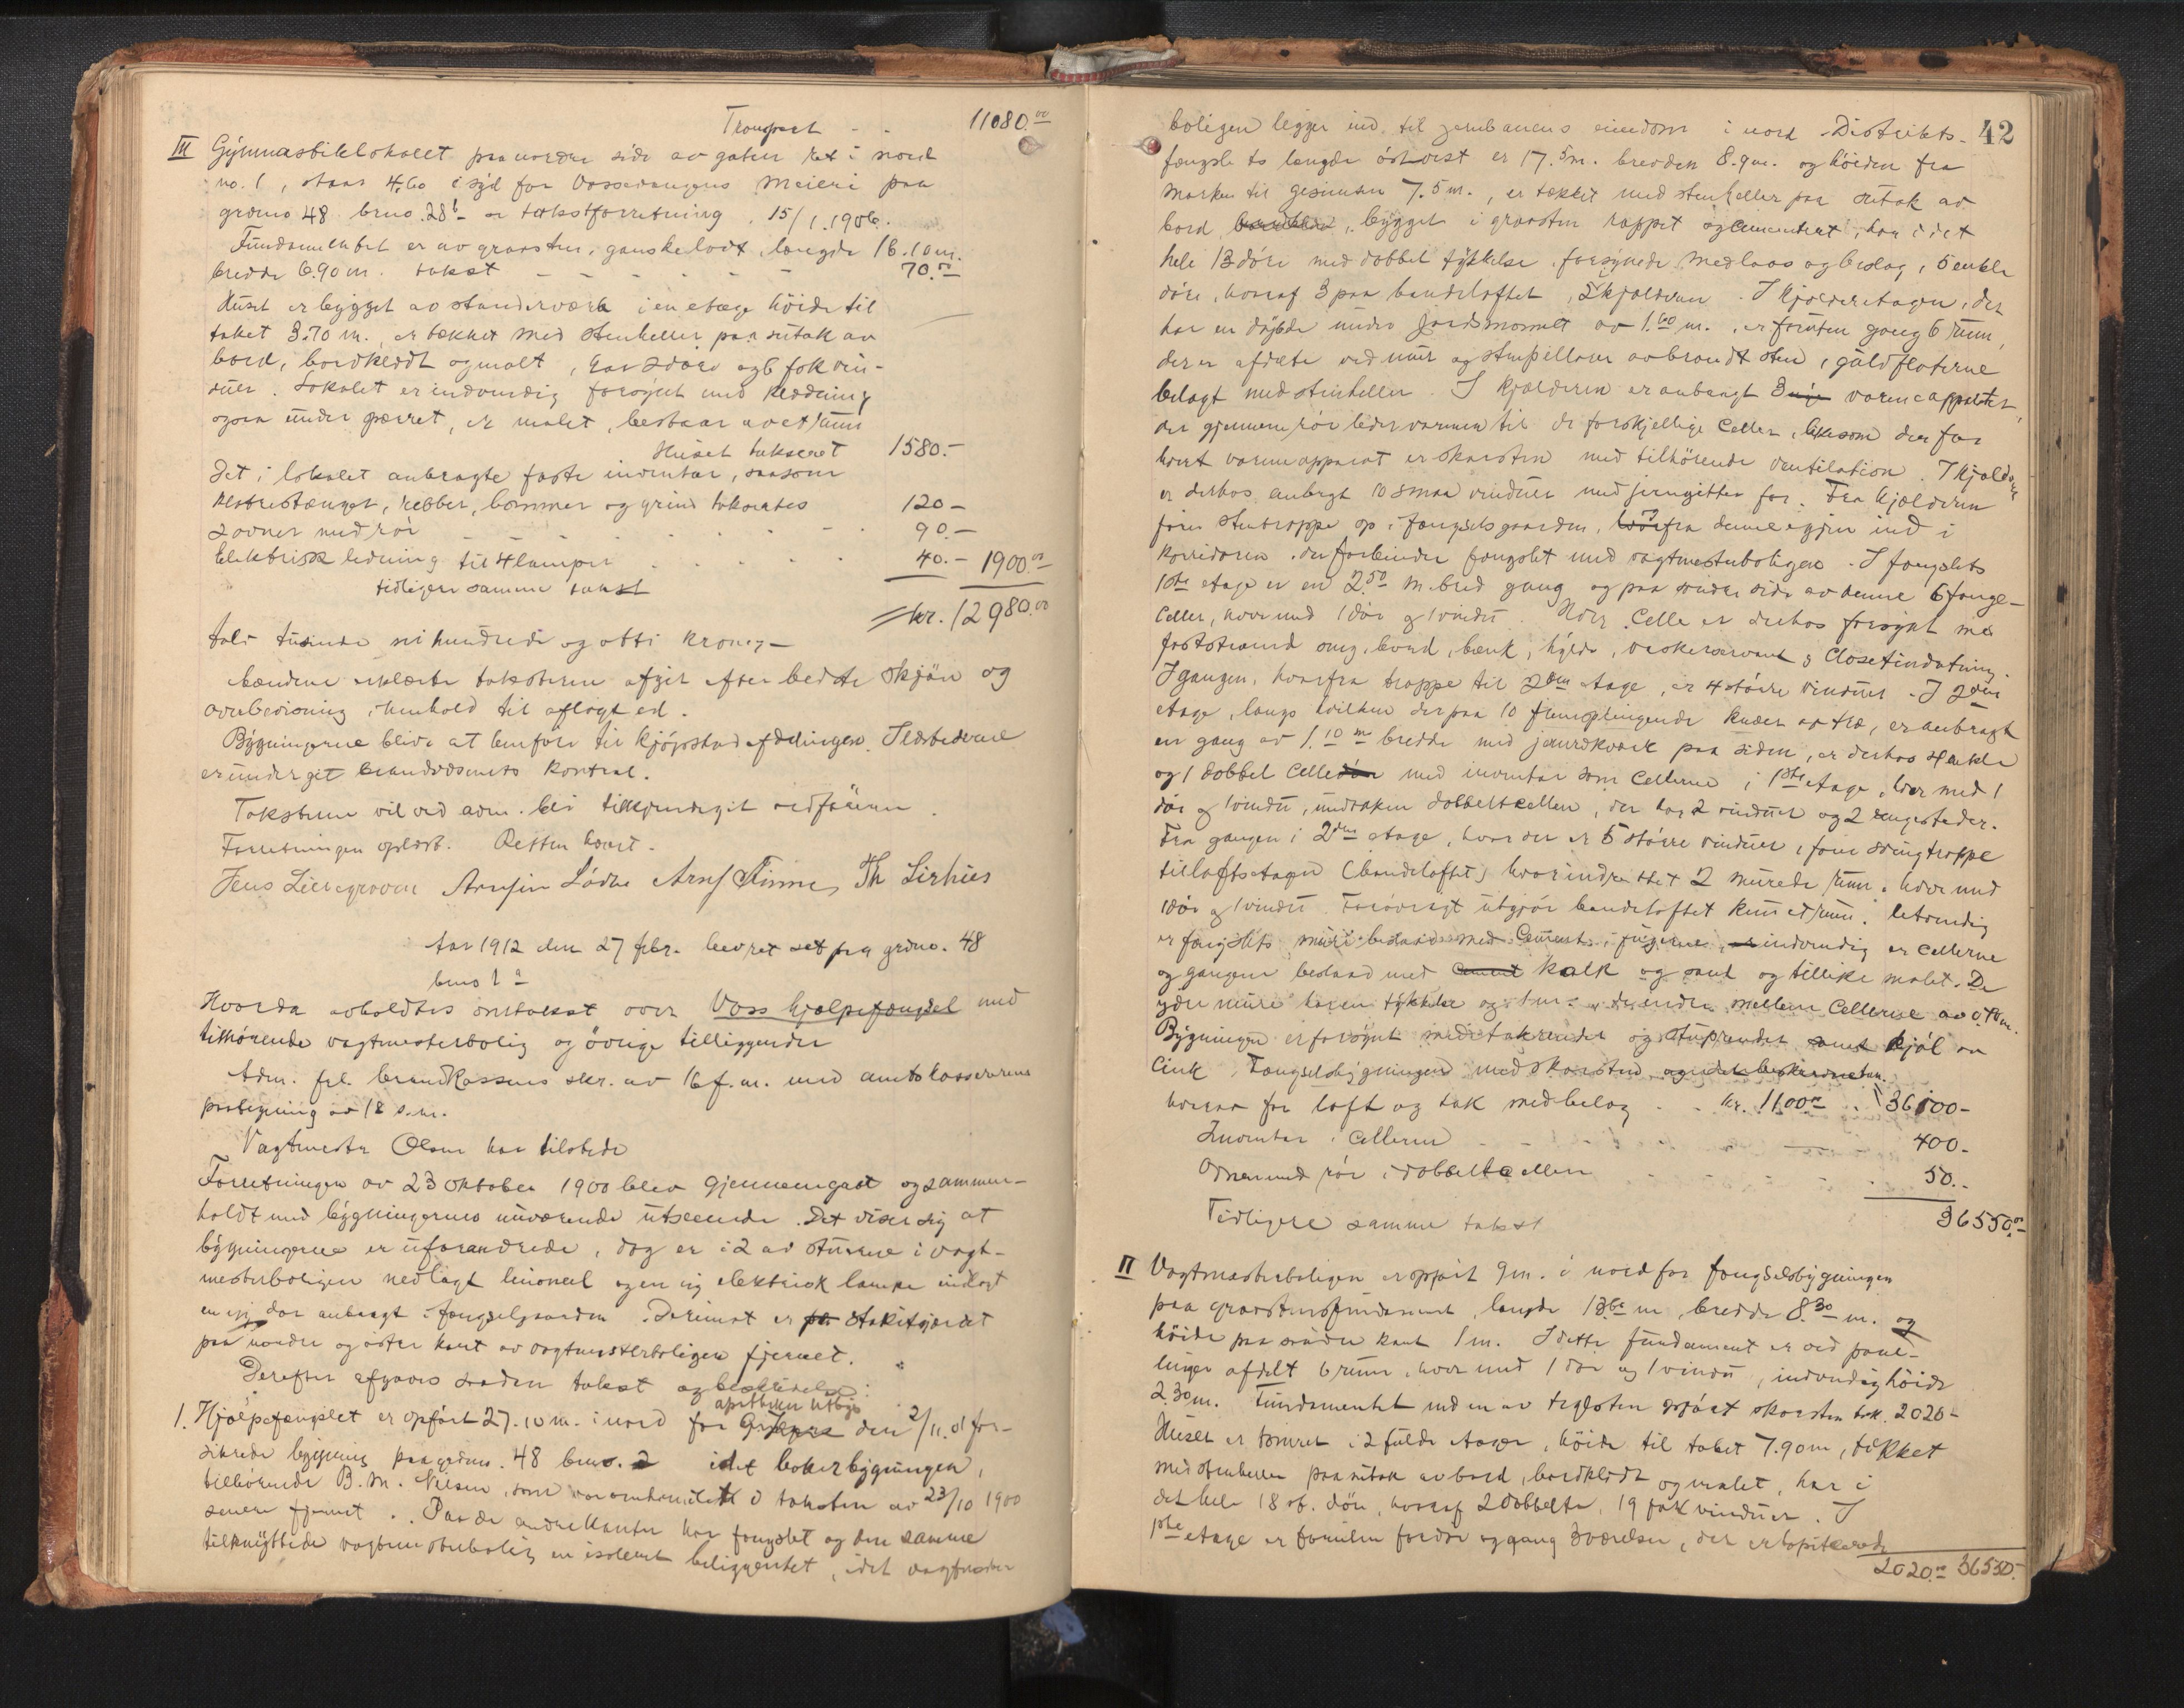 Transport - - 11080.00
III Gymnastiklokalet paa nordre side av gaten ret i nord
no. 1, staar 4,60 i syd for Vossevangens Meieri paa
grdno 48 brno. 28b - se takstforretning 15/1.1906.
Fundamentet er av graasten, ganske lavt, længde 16.10 m.
bredde 6.90 m. takst - - - - - 70.00
Huset er bygget av standerværk i en etage høide til
taket 3.70 m., er tækket med stenheller paa sutak av
bord, bordklædt og malt, har 2 døre og 6 fok vin-
duer. Lokalet er indvendig forsynt med klædning
ogsaa under sperret, er malet, bestaar av et rum
Huset takseret 1580.-
Det i lokalet anbragte faste inventar, saasom
klatrestænger, ribber, bommer og grind takseres 120 -
2 ovner med rør - - - - 90.-
Elektrisk ledning til 4 lamper . . . . 40.- 1900.00
tidligere samme takst
kr. 12980.00
tolv tusinde ni hundrede og otti kroner -
Mændene erklærte taksterne afgit efter bedste skjøn og
overbevisning i henhold til aflagt ed.
Bygningerne blive at henføre til kjøpstadafdelingen. Ildstederne
er undergit brandvæsenets kontrol.
Taksterne vil ved adm. bli tilkjendegit vedkommende.
Forretningen oplæst. Retten hævet.
Jens Liersgroven Arnfin Lødve Arnf Finne Th Lirhus
Aar 1912 den 27 febr. blev ret sat paa grdno. 48
brno 1a
Hvorda avholdtes omtakst over Voss hjælpefængsel med
tilhørende vagtmesterbolig og øvrige tilliggender
Adm. frl. brandkassens skr. av 16 f.m. med amtskassererens
paategning av 18 s.m.
Vagtmester Olsen var tilstede
Forretningen av 23 oktober 1900 blev gjennemgaat og sammen-
holdt med bygningernes nuværende utseende. Det viser sig at
bygningerne er uforandrede, dog er i 2 av stuerne i vagt-
mesterboligen nedlagt linoneul og en ny elektrisk lampe indlagt
en ny dør anbragt i fængselsgaarden. Derimot er paa stakitgjærdet
paa nordre og østre kant av vagtmesterboligen fjernet.
Derefter afgaves saadan takst og beskrivelse:
apotheker Utbjs
1. Hjælpefængslet er opført 27.10 m. i nord for G. Jepes den 2/11.01 for-
sikrede bygning paa grdno. 48 brno. 2 idet bokerbygningen,
tilhørende B. M. Nilsen, som var omhandlet i taksten av 23/10 1900
senere fjernet. Paa de andre kanter har fængslet og den samme
tilknyttede vagtmesterbolig en isoleret beliggenhet, idet vagtmester
42
boligen ligger ind til jernbanens eiendom i nord. Distrikts-
fængslets længde øst-vest er 17.5 m. bredden 8.9 m. og høiden fra
marken til gesimsen 7.5 m., er tækket med stenheller paa sutak av
bord, bygget i graasten rappet og cementert, har i det
hele 13 døre med dobbel tykkelse, forsynede med laas og beslag, 5 enkle
døre, hvoraf 3 paa bandeloftet, 2 i kjælderen. I kjælderetagen, der
har en dybde under jordsmonnet av 1.60 m., er foruten gang 6 rum,
der er afdelte ved mur og stenpillarer av brændt sten, guldflaterne
belagt med stenheller. I kjælderen er anbragt 3 varmeapparater,
der gjennem rør leder varmen til de forskjellige celler, likesom der for
hvert varmeapparat er skorsten med tilhørende ventilation. I kjælderen
er derhos anbragt 10 smaa vinduer med jerngitter for. Fra kjælderen
fører stentrappe op i fængselsgaarden, fra denne igjen ind i
korridoren, der forbinder fængslet med vagtmesterboligen. I fængslets
1ste etage er en 2.50 m. bred gang og paa søndre side av denne 6 fange-
celler, hver med 1 dør og 1 vindu. Hver celle er derhos forsynt med
fastskruet seng, bord, bænk, hylde, vaskeservant & closetindretning.
I gangen, hvorfra trappe til 2den etage, er 4 større vinduer. I 2den
etage, langs hvilken der paa 10 fremspringende knæer av træ, er anbragt
en gang av 1.10 m bredde med jernrækværk paa siden, er derhos 4 enkle
og 1 dobbel celle med inventar som cellerne i 1ste etage, hver med 1
dør og 1 vindu, undtaken dobbeltcellen, der har 2 vinduer og 2 sengesteder.
Fra gangen i 2den etage, hvor der er 5 større vinduer, fører svingtrappe
til loftsetagen (bandeloftet) hvor indredet 2 murede rum, hver med
1 dør og 1 vindu. Forøvrigt utgjør bandeloftet kun et rum. Utvendig
er fængslets mure beslaaet med cement i fugerne, indvendig er cellerne
og gangene beslaaed med kalk og sand og tillike malet. De
ydre mure har en tykkelse og 1 m., de indre mellem cellerne av 0.40 m.
Bygningen er forsynt med takrender og stuprender samt kjøl av
cink. Fængselsbygningen med skorsten
hvorav for loft og tak med belæg . . kr. 1100.00 . . 36100-
Inventar i cellerne - - - - - 400.-
Ovnen med rør i dobbeltcellen - - - - 50.-
Tidligere samme takst 36550.00
II Vagtmesterboligen er opført 9 m. i nord for fængselsbygningen
paa graastensfundament, længde 13.60 m, bredde 8.30 m. og
høide paa søndre kant 1 m. I dette fundament er ved panel-
linger afdelt 6 rum, hver med 1 dør og 1 vindu, indvendig høide
2.30 m. Fundamentet med en av teglsten opført skorsten tak. 2020-
Huset er tømret i 2 fulde etager, høide til taket 7.90 m, tækket
med stenheller paa sutak av bord, bordklædt og malet, har i
det hele 18 st. døre, hvoraf 2 dobbelte, 19 fok vinduer. I
1ste etage er foruten fordør og gang 3 værelser, der er tapitserede
2020.00 36550.-